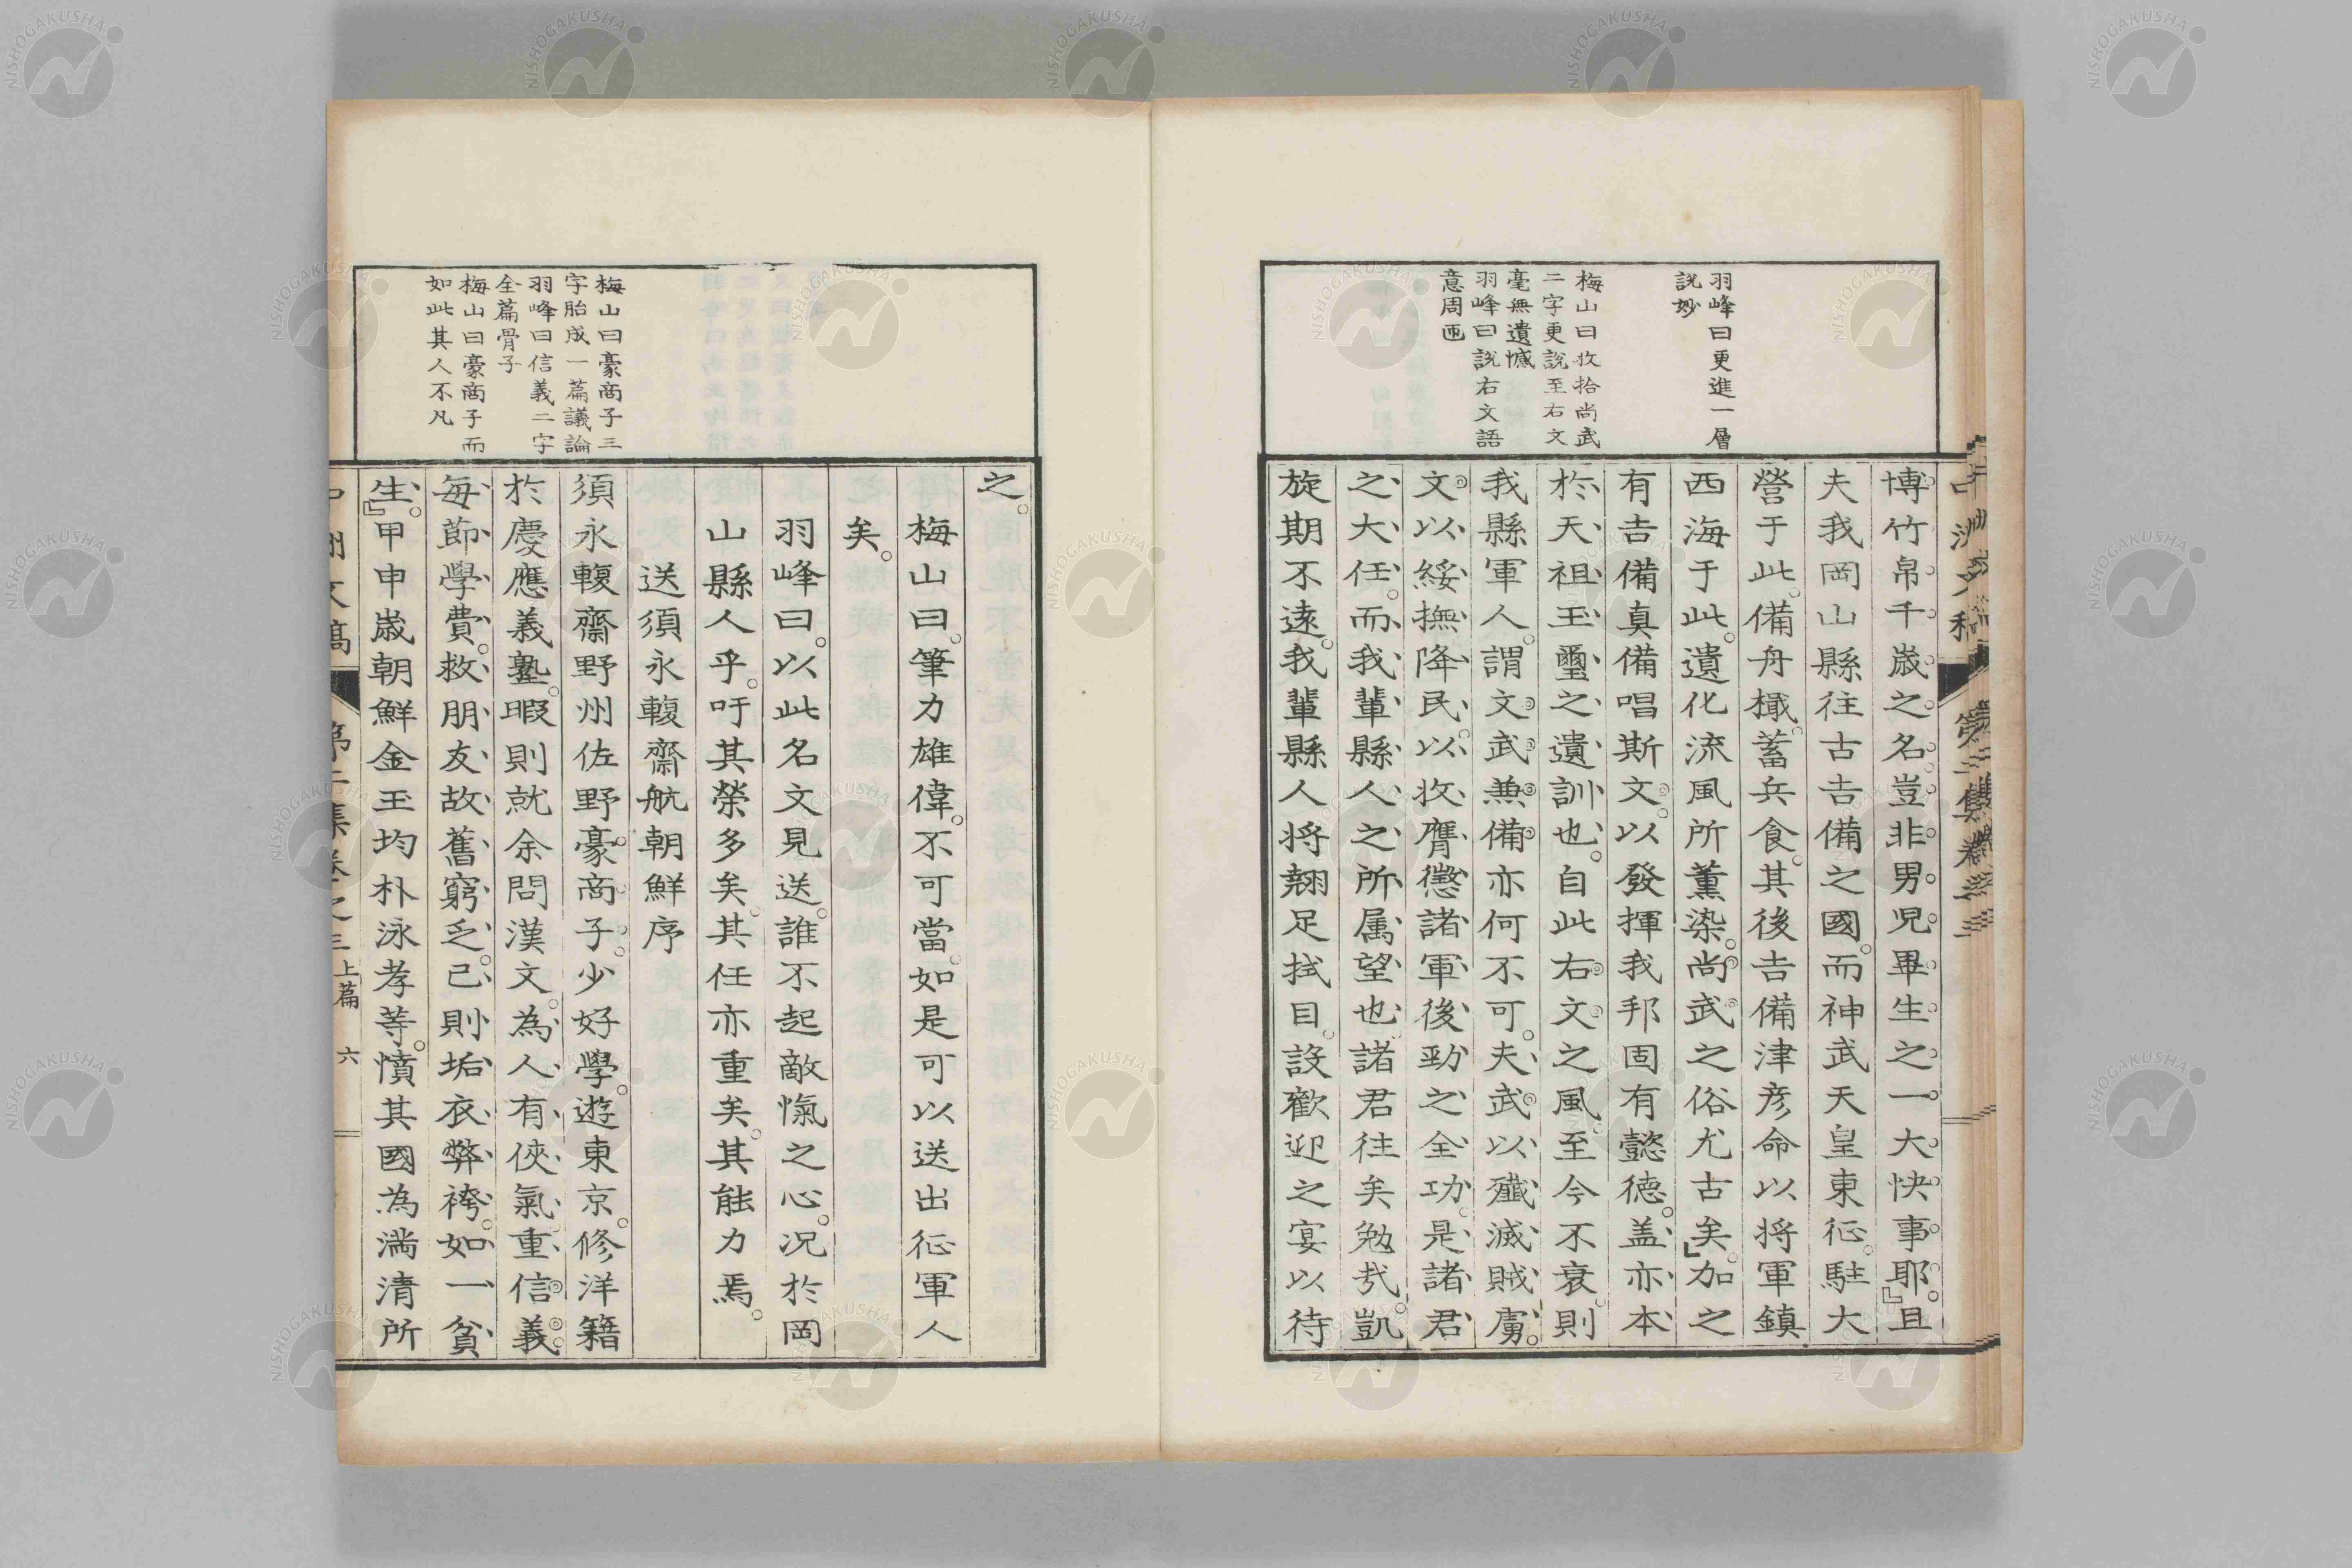 羽峰曰更進一層
説妙
梅山曰收拾尚武
二字更説至右文
毫無遺憾
羽峰曰説右文語
意周匝
博竹帛千歳之名。豈非男兒畢生之一大快事耶。』且
夫我岡山縣往古吉備之國。而神武天皇東征。駐大
營于此。備舟檝。蓄兵食。其後吉備津彦命以將軍鎮
西海于此。遺化流風所薫染。尚武之俗尤古矣。』加之
有吉備真備唱斯文。以發揮我邦固有懿德。盖亦本
於天祖玉璽之遺訓也。自此右文之風至今不衰。則
我縣軍人。謂文武兼備亦何不可。夫武以殲滅賊虜。
文以綏撫降民。以收膺懲諸軍後勁之全功。是諸君
之大任。而我輩縣人之所属望也。諸君往矣勉哉。凱
旋期不遠。我輩縣人將翹足拭目。設歡迎之宴以待
之。
梅山曰。筆力雄偉。不可當。如是可以送出征軍人
矣。
羽峰曰。以此名文見送。誰不起敵愾之心。况於岡
山縣人乎。吁其榮多矣。其任亦重矣。其能力焉。
送須永輹齋航朝鮮序
梅山曰豪商子三
字胎成一篇議論
羽峰曰信義二字
全篇骨子
梅山曰豪商子而
如此其人不凡
須永輹齋野州佐野豪商子。少好學。遊東京。修洋籍
於慶應義塾。暇則就余問漢文。為人有俠氣重信義。
每節學費。救朋友故舊窮乏。己則垢衣弊袴。如一貧
生。』甲申歳朝鮮金玉均朴泳孝等。憤其國為満清所
第二集卷之三 上篇 六